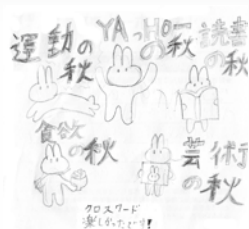 運動の
秋
YAっHOーの秋
読書
の秋
食欲
の秋
芸術
の秋
クロスワード
楽しかったです!